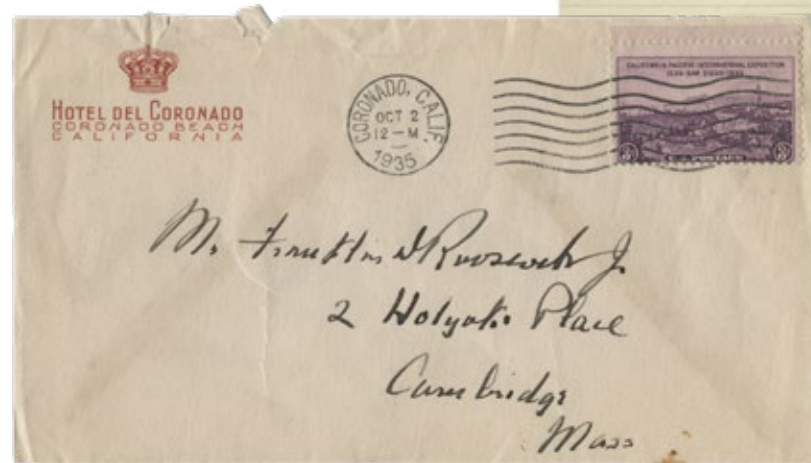 HOTEL DEL CORONADO
CORONADO BEACH
CALIFORNIA
CORONADO, CALIF.
OCT 2
12-M
1935
CALIFORNIA PACIFIC INTERNATIONAL EXPOSITION
1935 SAN DIEGO 1935
3 U.S. POSTAGE 3
Mr Franklin D Roosevelt Jr.
2 Holyoke Place
Cambridge
Mass